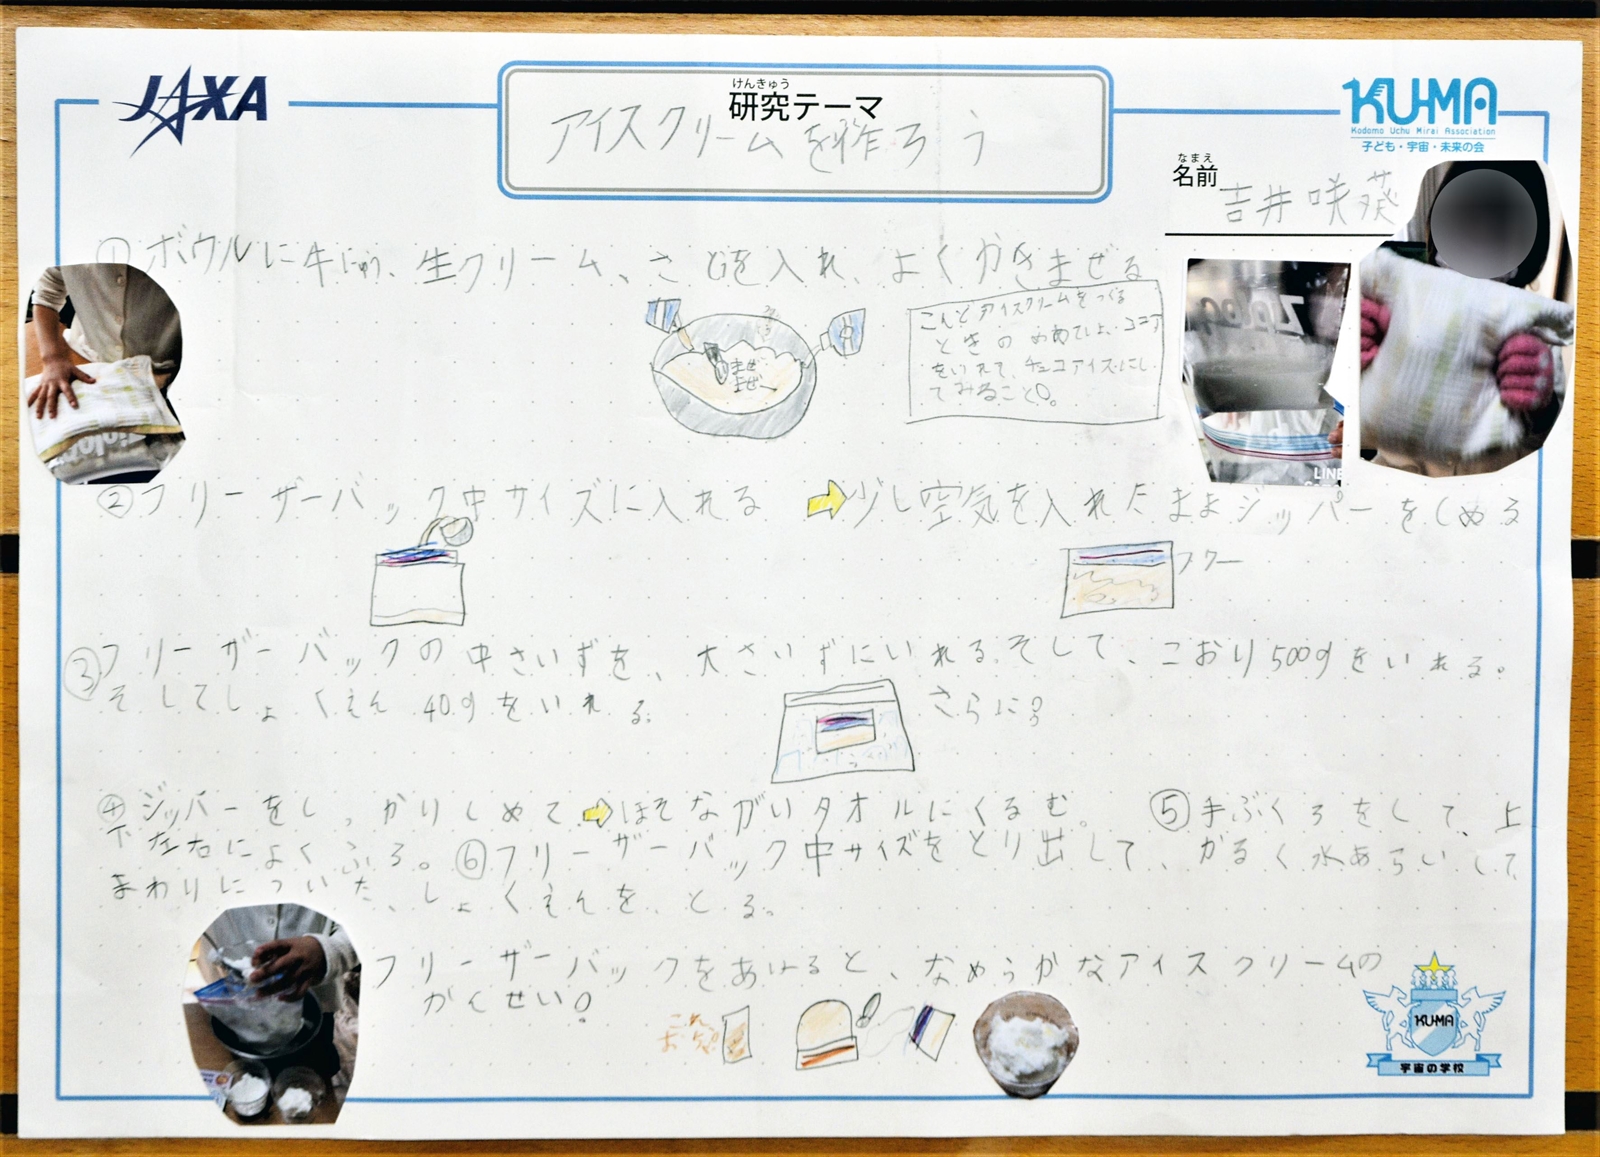 JAXA
けんきゅう
研究テーマ
アイスクリームを作ろう
KU-MA
Kodomo Uchu Mirai Association
子ども・宇宙・未来の会
なまえ
名前
吉井咲葵
①ボウルに牛にゅう、生クリーム、さとうを入れ、よくかきまぜる
まぜ
まぜ
こんどアイスクリームをつくる
ときの
をいれて、チョコアイスにし
てみること。
Ziploc
②フリーザーバック中サイズに入れる ➡少し空気を入れたままジッパーをしめる
フワー
③フリーザーバックの中さいずを、大さいずにいれる。そして、こおり500gをいれる。
そしてしょくえん40gをいれる。
さらに?
④ジッパーをしっかりしめて➡ほそながいタオルにくるむ。 ⑤手ぶくろをして、上
下左右によくふる。⑥フリーザーバック中サイズをとり出して、かるく水あらいして
まわりについた、しょくえんを、とる。
フリーザーバックをあけると、なめらかなアイスクリームの
かんせい!
KU-MA
宇宙の学校